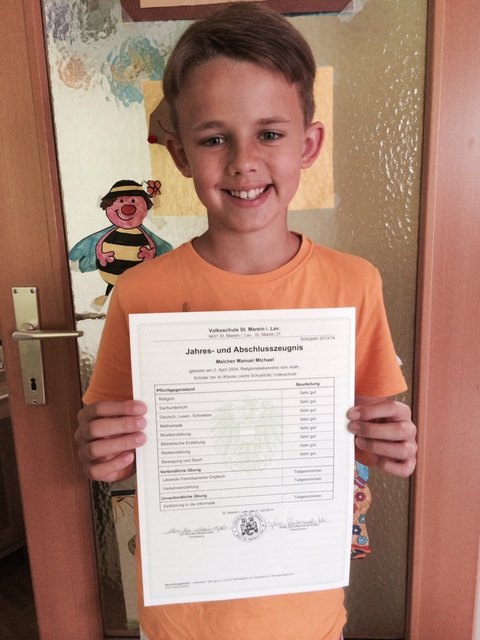 Volksschule St. Marein i. Lav.
9431 St. Marein i. Lav., St. Marein 21
Schuljahr 2013/14
Jahres- und Abschlusszeugnis
Melcher Manuel Michael
geboren am 2. April 2004, Religionsbekenntnis röm.-kath.,
Schüler der 4c-Klasse (vierte Schulstufe) Volksschule
Pflichtgegenstand Beurteilung
Religion Sehr gut
Sachunterricht Sehr gut
Deutsch, Lesen, Schreiben Sehr gut
Mathematik Sehr gut
Musikerziehung Sehr gut
Bildnerische Erziehung Sehr gut
Werkerziehung Sehr gut
Bewegung und Sport Sehr gut
Verbindliche Übung
Lebende Fremdsprache Englisch Teilgenommen
Verkehrserziehung Teilgenommen
Unverbindliche Übung
Einführung in die Informatik Teilgenommen
St. Marein i. Lav.